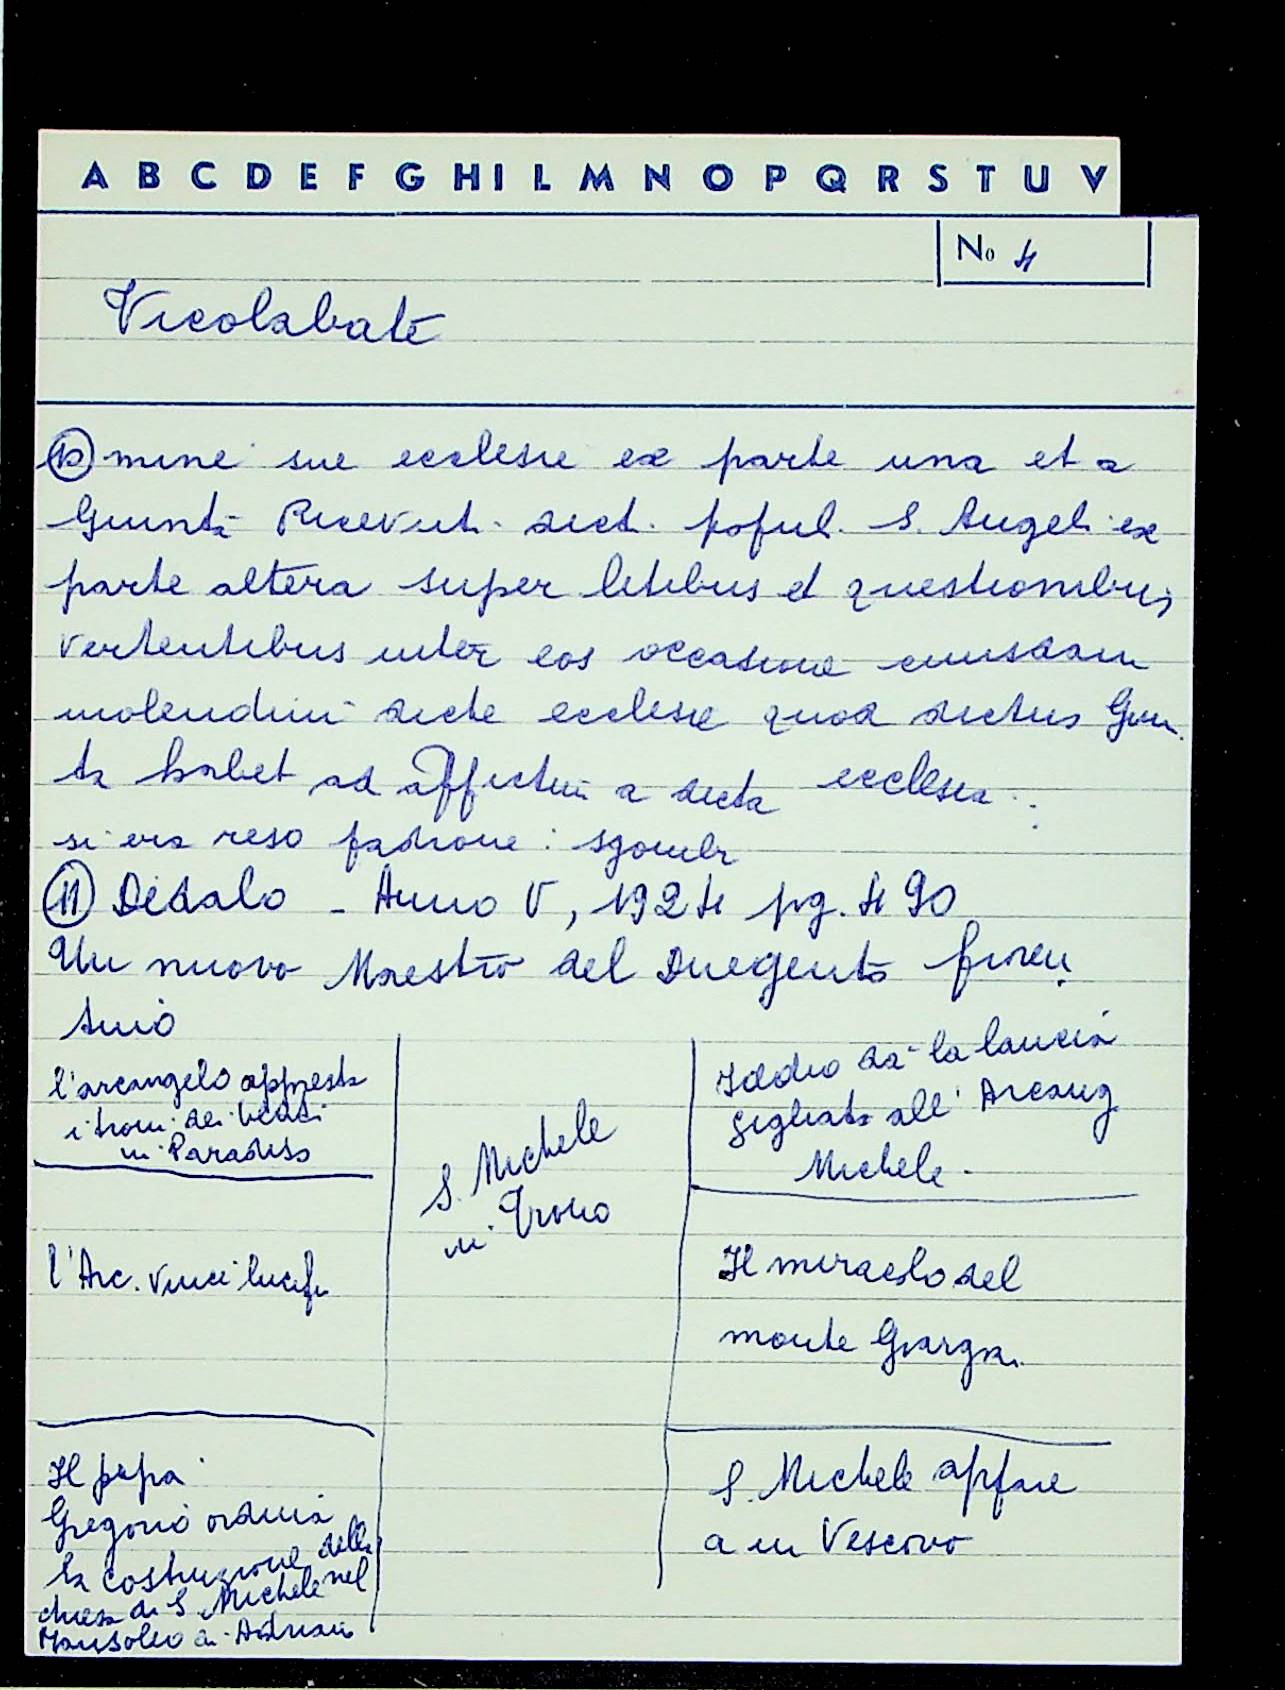 A B C D E F G H I L M N O P Q R S T U V
No 4
Vicolabate
10 mine sue ecclesie ex parte una et a
Giunta Ricevuti dict. popul. S. Angeli ex
parte altera super litibus et questionibus
vertentibus inter eos occasione cuiusdam
molendini dicte ecclesie quod dictus Giun
ta habet ad affictum a dicta ecclesia..
si era reso padrone: sgombr
11 Dedalo - Anno V, 1924 pg. 490
Un nuovo Maestro del Duegento fioren
tino
l'arcangelo appresta
i troni dei beati
in Paradiso
l'Arc. vince lucife
Il papa
Gregorio ordina
la costruzione della
chiesa di S. Michele nel
Mausoleo di Adriano
S. Michele
in Trono
Iddio dà la lancia
gigliata all' Arcang
Michele.
Il miracolo del
monte Gargan.
S. Michele appare
a un Vescovo